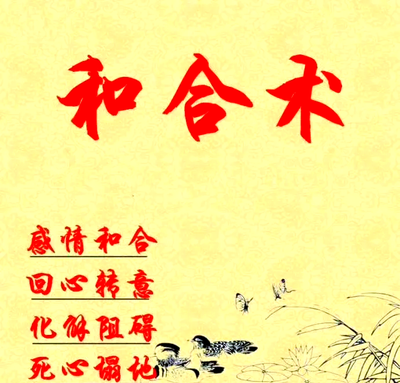 和合术
感情和合
回心转意
化解阻碍
死心塌地